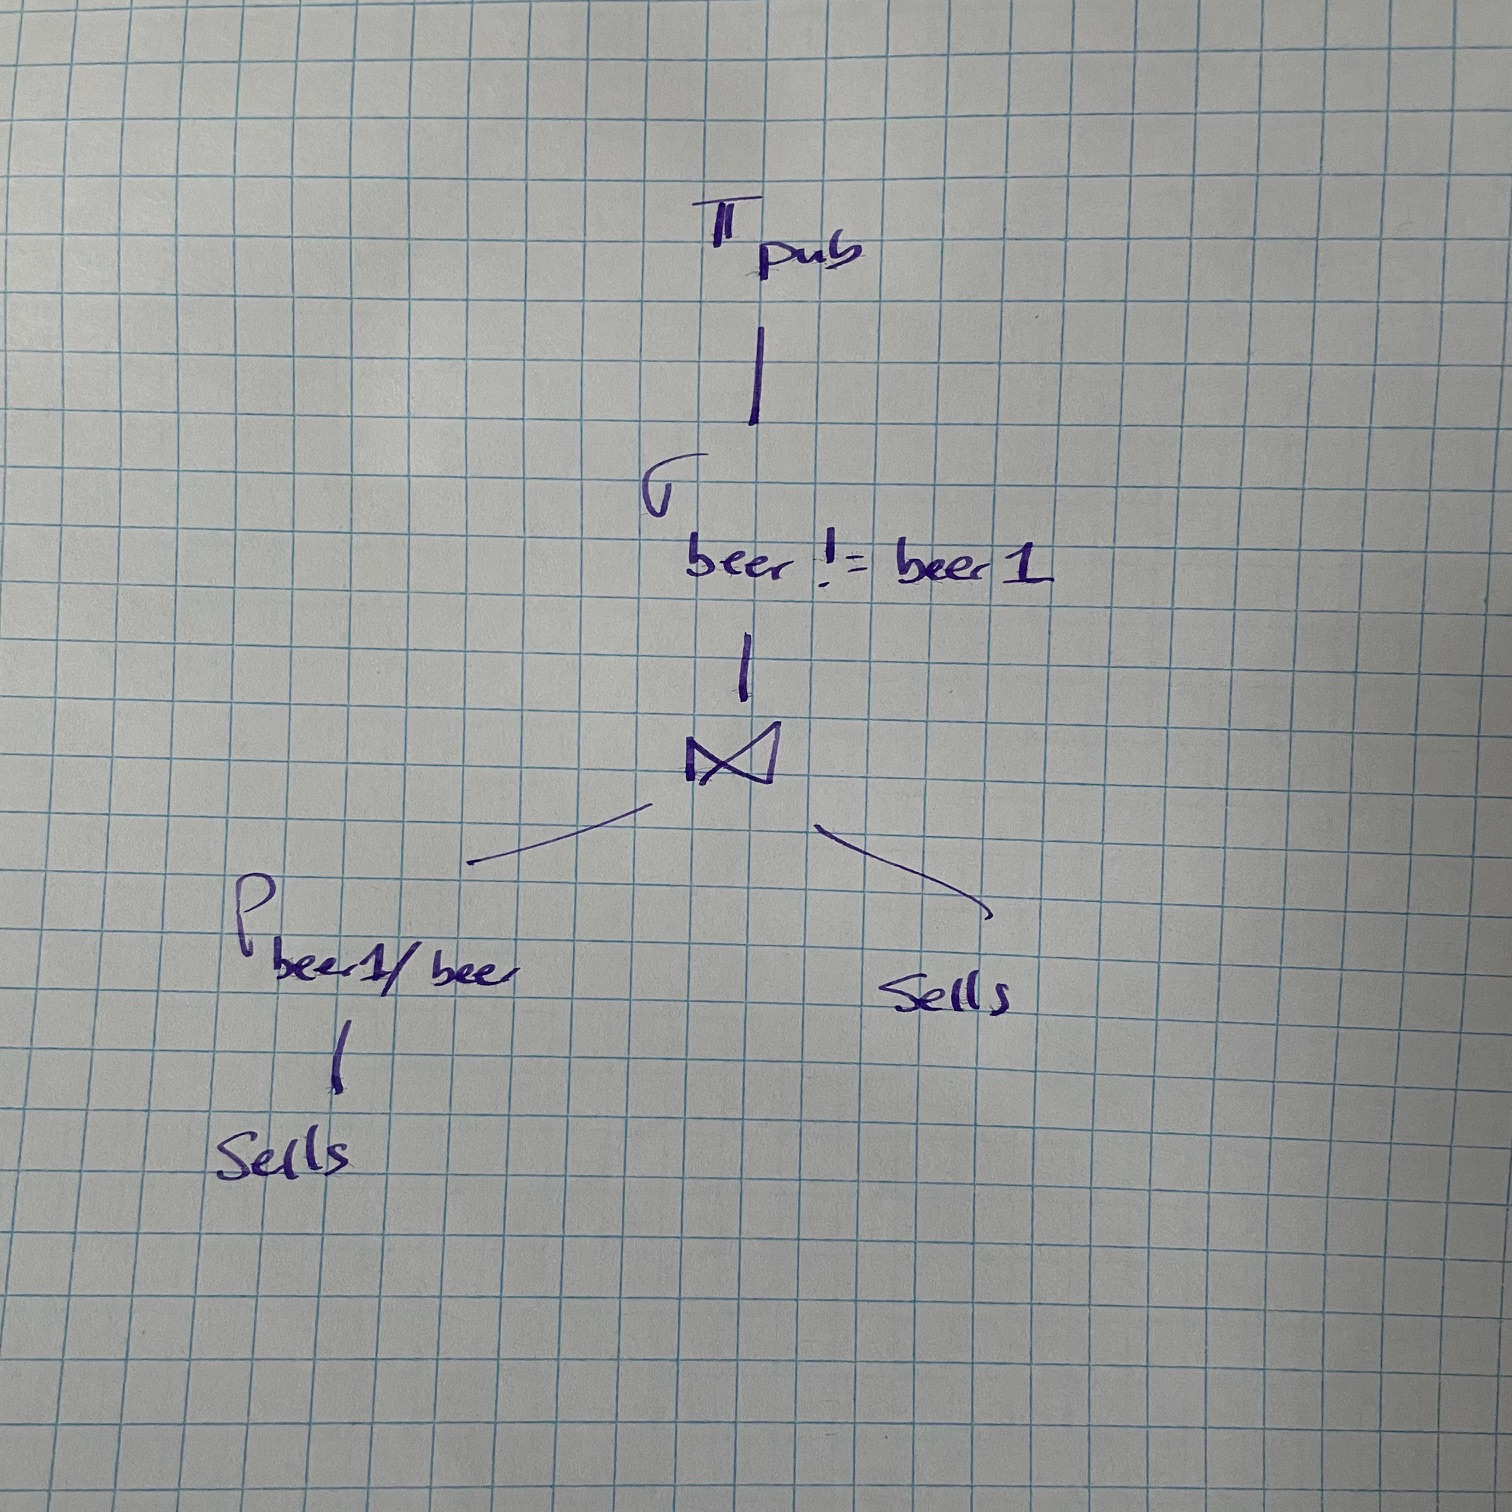 π pub
σ
beer != beer1
⋈
ρ beer1/beer
Sells
Sells